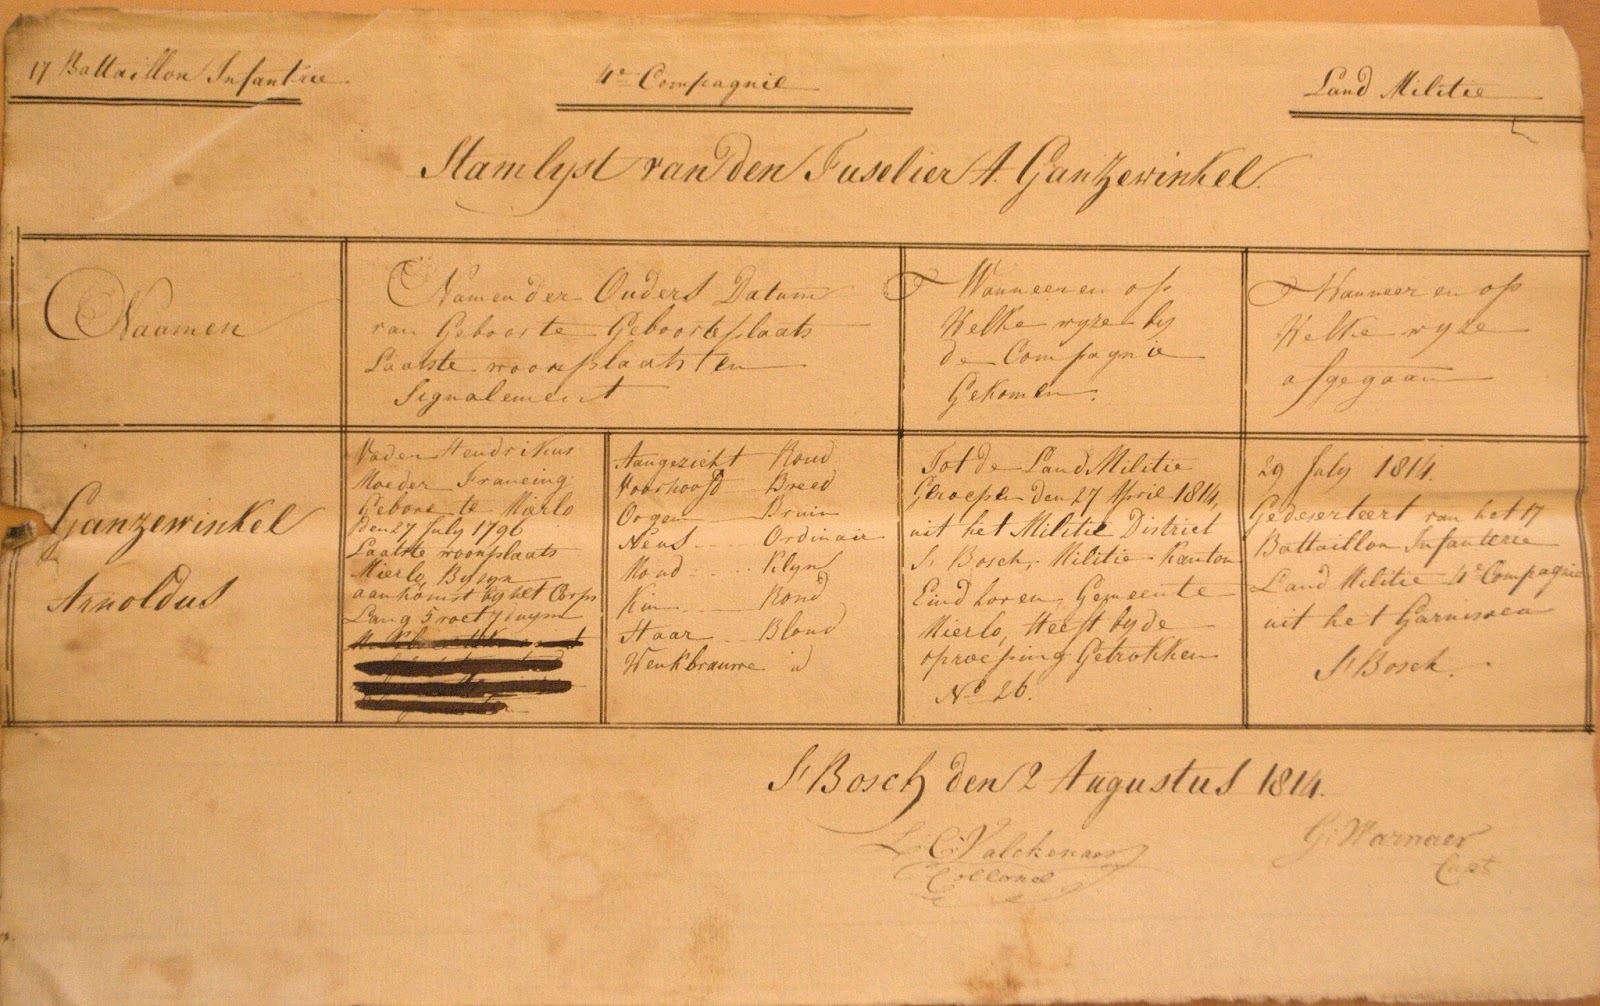 17 Battaillon Infantrie
4e Compagnie
Land Militie
Stamlyst van den Fuselier A. Ganzewinkel
Naamen
Namen der Ouders Datum
van Geboorte Geboorteplaats
Laatste woonplaats en
Signalement
Wanneer en op
Welke wyze by
de Compagnie
Gekomen.
Wanneer en op
Welke wyze
afgegaan
Ganzewinkel
Arnoldus
Vader Hendrikus
Moeder Francing
Geboren te Mierlo
Den 27 July 1796
Laatste woonplaats
Mierlo, By zyn
aankomst by het Corps
Lang 5 voet 7 duym
Aangezicht Rond
Voorhoofd Breed
Oogen Bruin
Neus ... Ordinair
Mond .... Klyn
Kin .... Rond
Haar ... Blond
Wenkbrauwe id
Tot de Land Militie
Geroepen den 27 April 1814,
uit het Militie District
S Bosch, Militie Kanton
Eindhoven, Gemeente
Mierlo, Heeft by de
oproeping Getrokken
No 26.
29 July 1814.
Gedeserteert van het 17
Battaillon Infanterie
Land Militie 4e Compagnie
uit het Garnisoen
S Bosch.
S Bosch den 2 Augustus 1814.
L C Valckenaer
Collonel
G: Warnaer
Capt